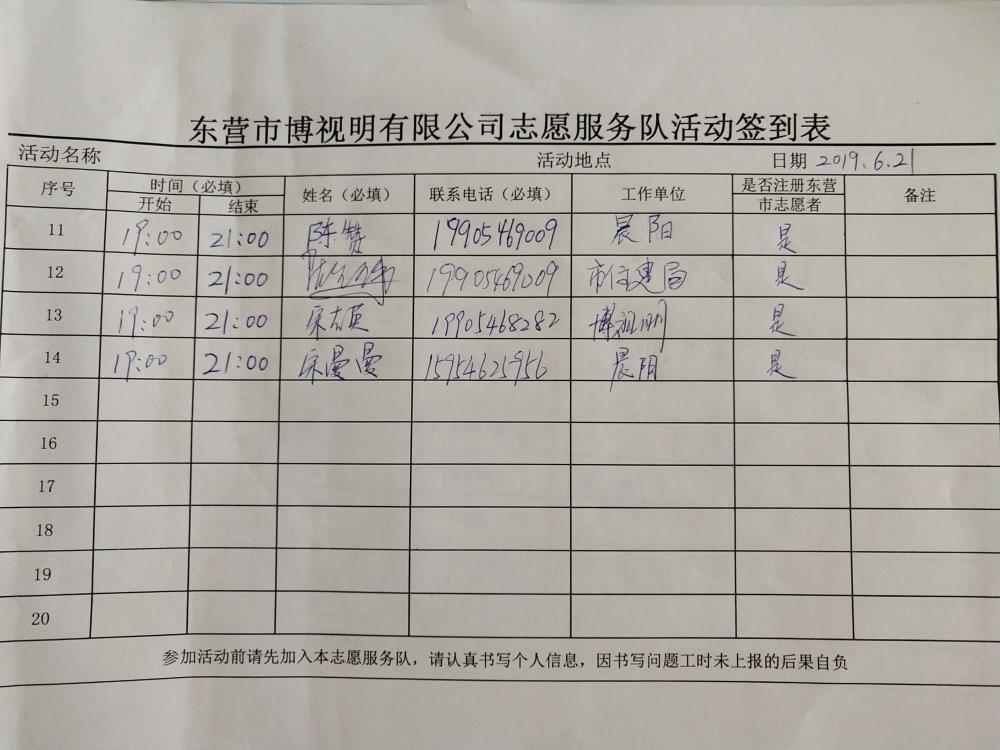 东营市博视明有限公司志愿服务队活动签到表
活动名称 活动地点 日期 2019.6.21
序号 时间（必填） 姓名（必填） 联系电话（必填） 工作单位 是否注册东营市志愿者 备注
开始 结束
11 19:00 21:00 陈赞 19905469009 晨阳 是
12 19:00 21:00 19905469009 市住建局 是
13 19:00 21:00 19905468282 博视明 是
14 19:00 21:00 宋曼曼 15954625956 晨阳 是
15
16
17
18
19
20
参加活动前请先加入本志愿服务队，请认真书写个人信息，因书写问题工时未上报的后果自负